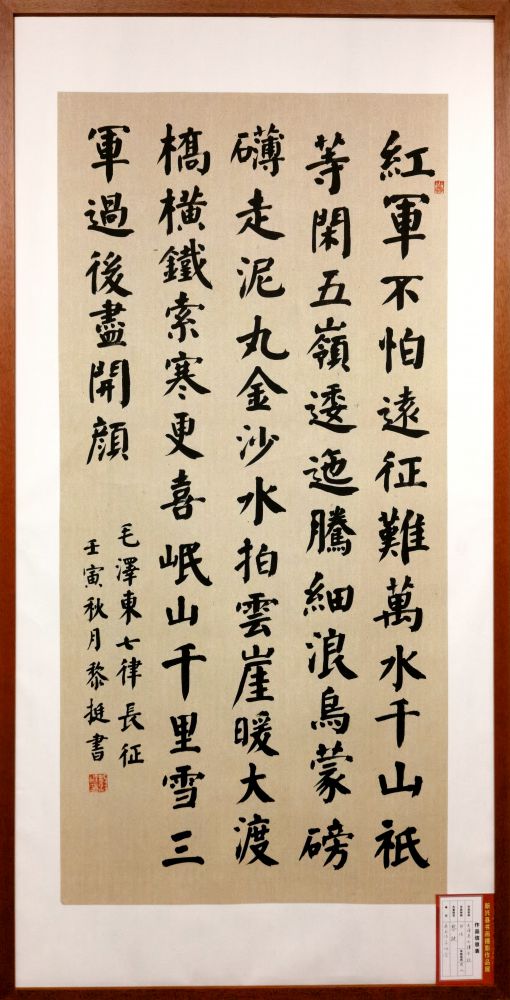 紅軍不怕遠征難萬水千山祇
等閑五嶺逶迤騰細浪烏蒙磅
礴走泥丸金沙水拍雲崖暖大渡
橋橫鐵索寒更喜岷山千里雪三
軍過後盡開顏
毛澤東七律長征
壬寅秋月黎挺書
新兴县书画摄影作品展
作品信息表